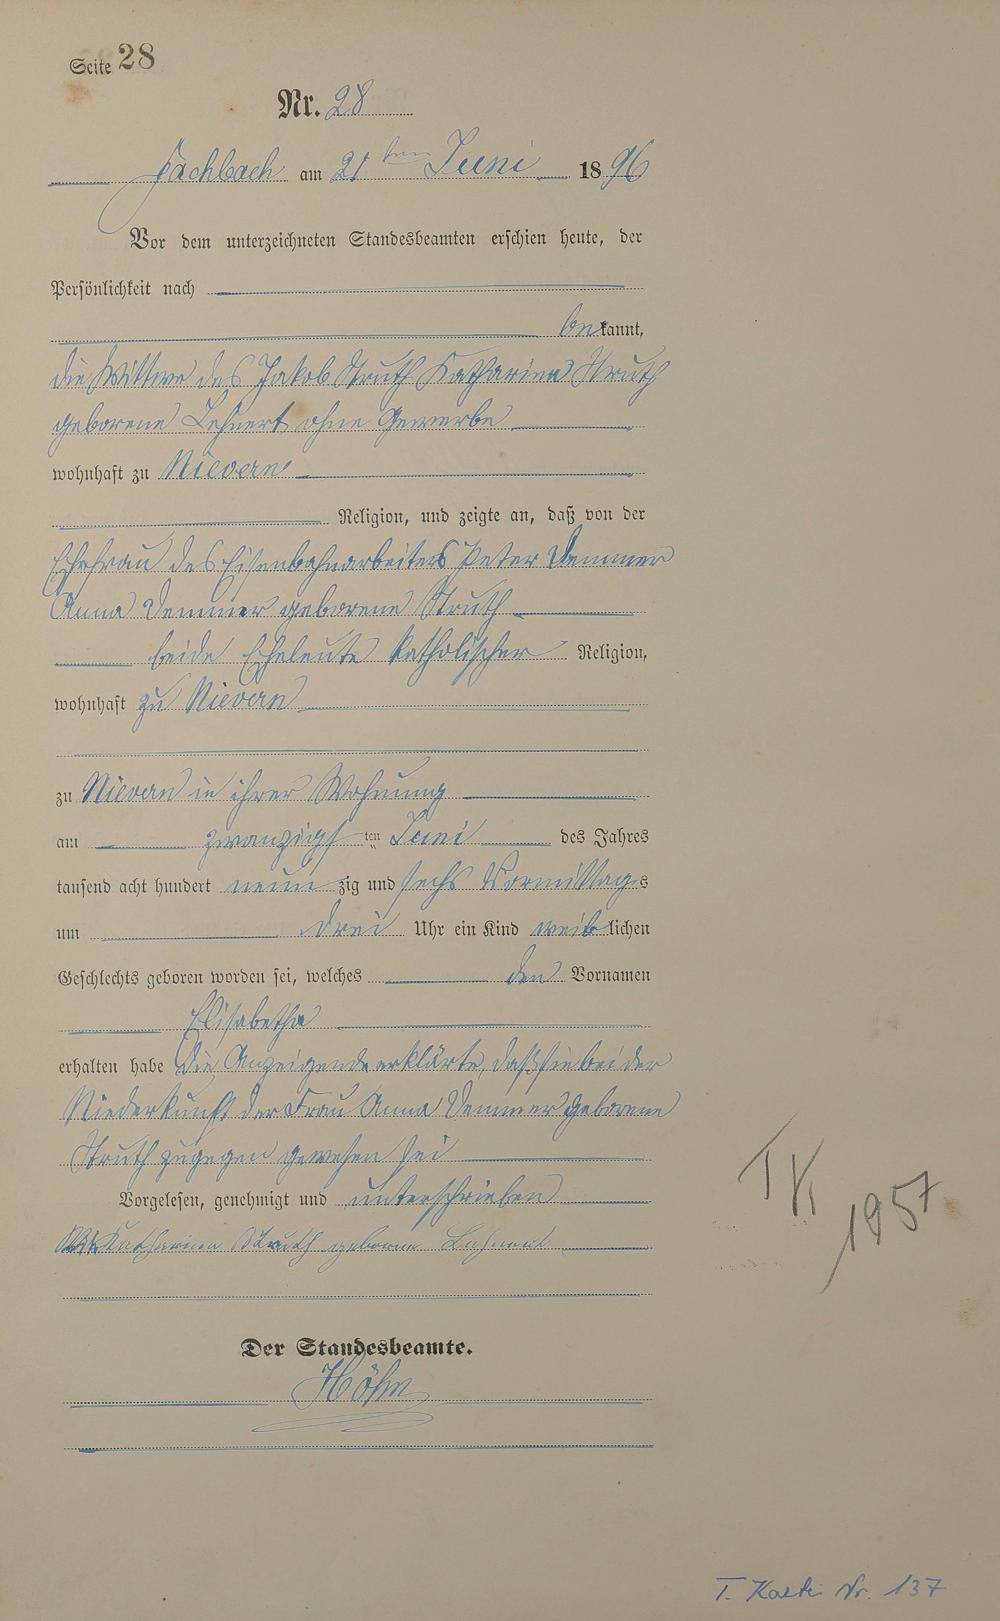 Seite 28
Nr. 28
Fachbach am 21ten Juni 1896
Vor dem unterzeichneten Standesbeamten erschien heute, der
Persönlichkeit nach
bekannt,
die Wittwe des Jakob Struth Katharina Struth
geborene Lehnert ohne Gewerbe
wohnhaft zu Nievern
Religion, und zeigte an, daß von der
Ehefrau des Eisenbahnarbeiters Peter Demmer
Anna Demmer geborene Struth
beide Eheleute katholischer Religion,
wohnhaft zu Nievern
zu Nievern in ihrer Wohnung
am zwanzigsten Juni des Jahres
tausend acht hundert neunzig und sechs Vormittags
um drei Uhr ein Kind weiblichen
Geschlechts geboren worden sei, welches den Vornamen
Elisabetha
erhalten habe Die Anzeigende erklärte, daß sie bei der
Niederkunft der Frau Anna Demmer geborene
Struth zugegen gewesen sei
Vorgelesen, genehmigt und unterschrieben
Katharina Struth geborne Lehnert
Der Standesbeamte.
Höhn
1957
T. Kartei Nr. 137